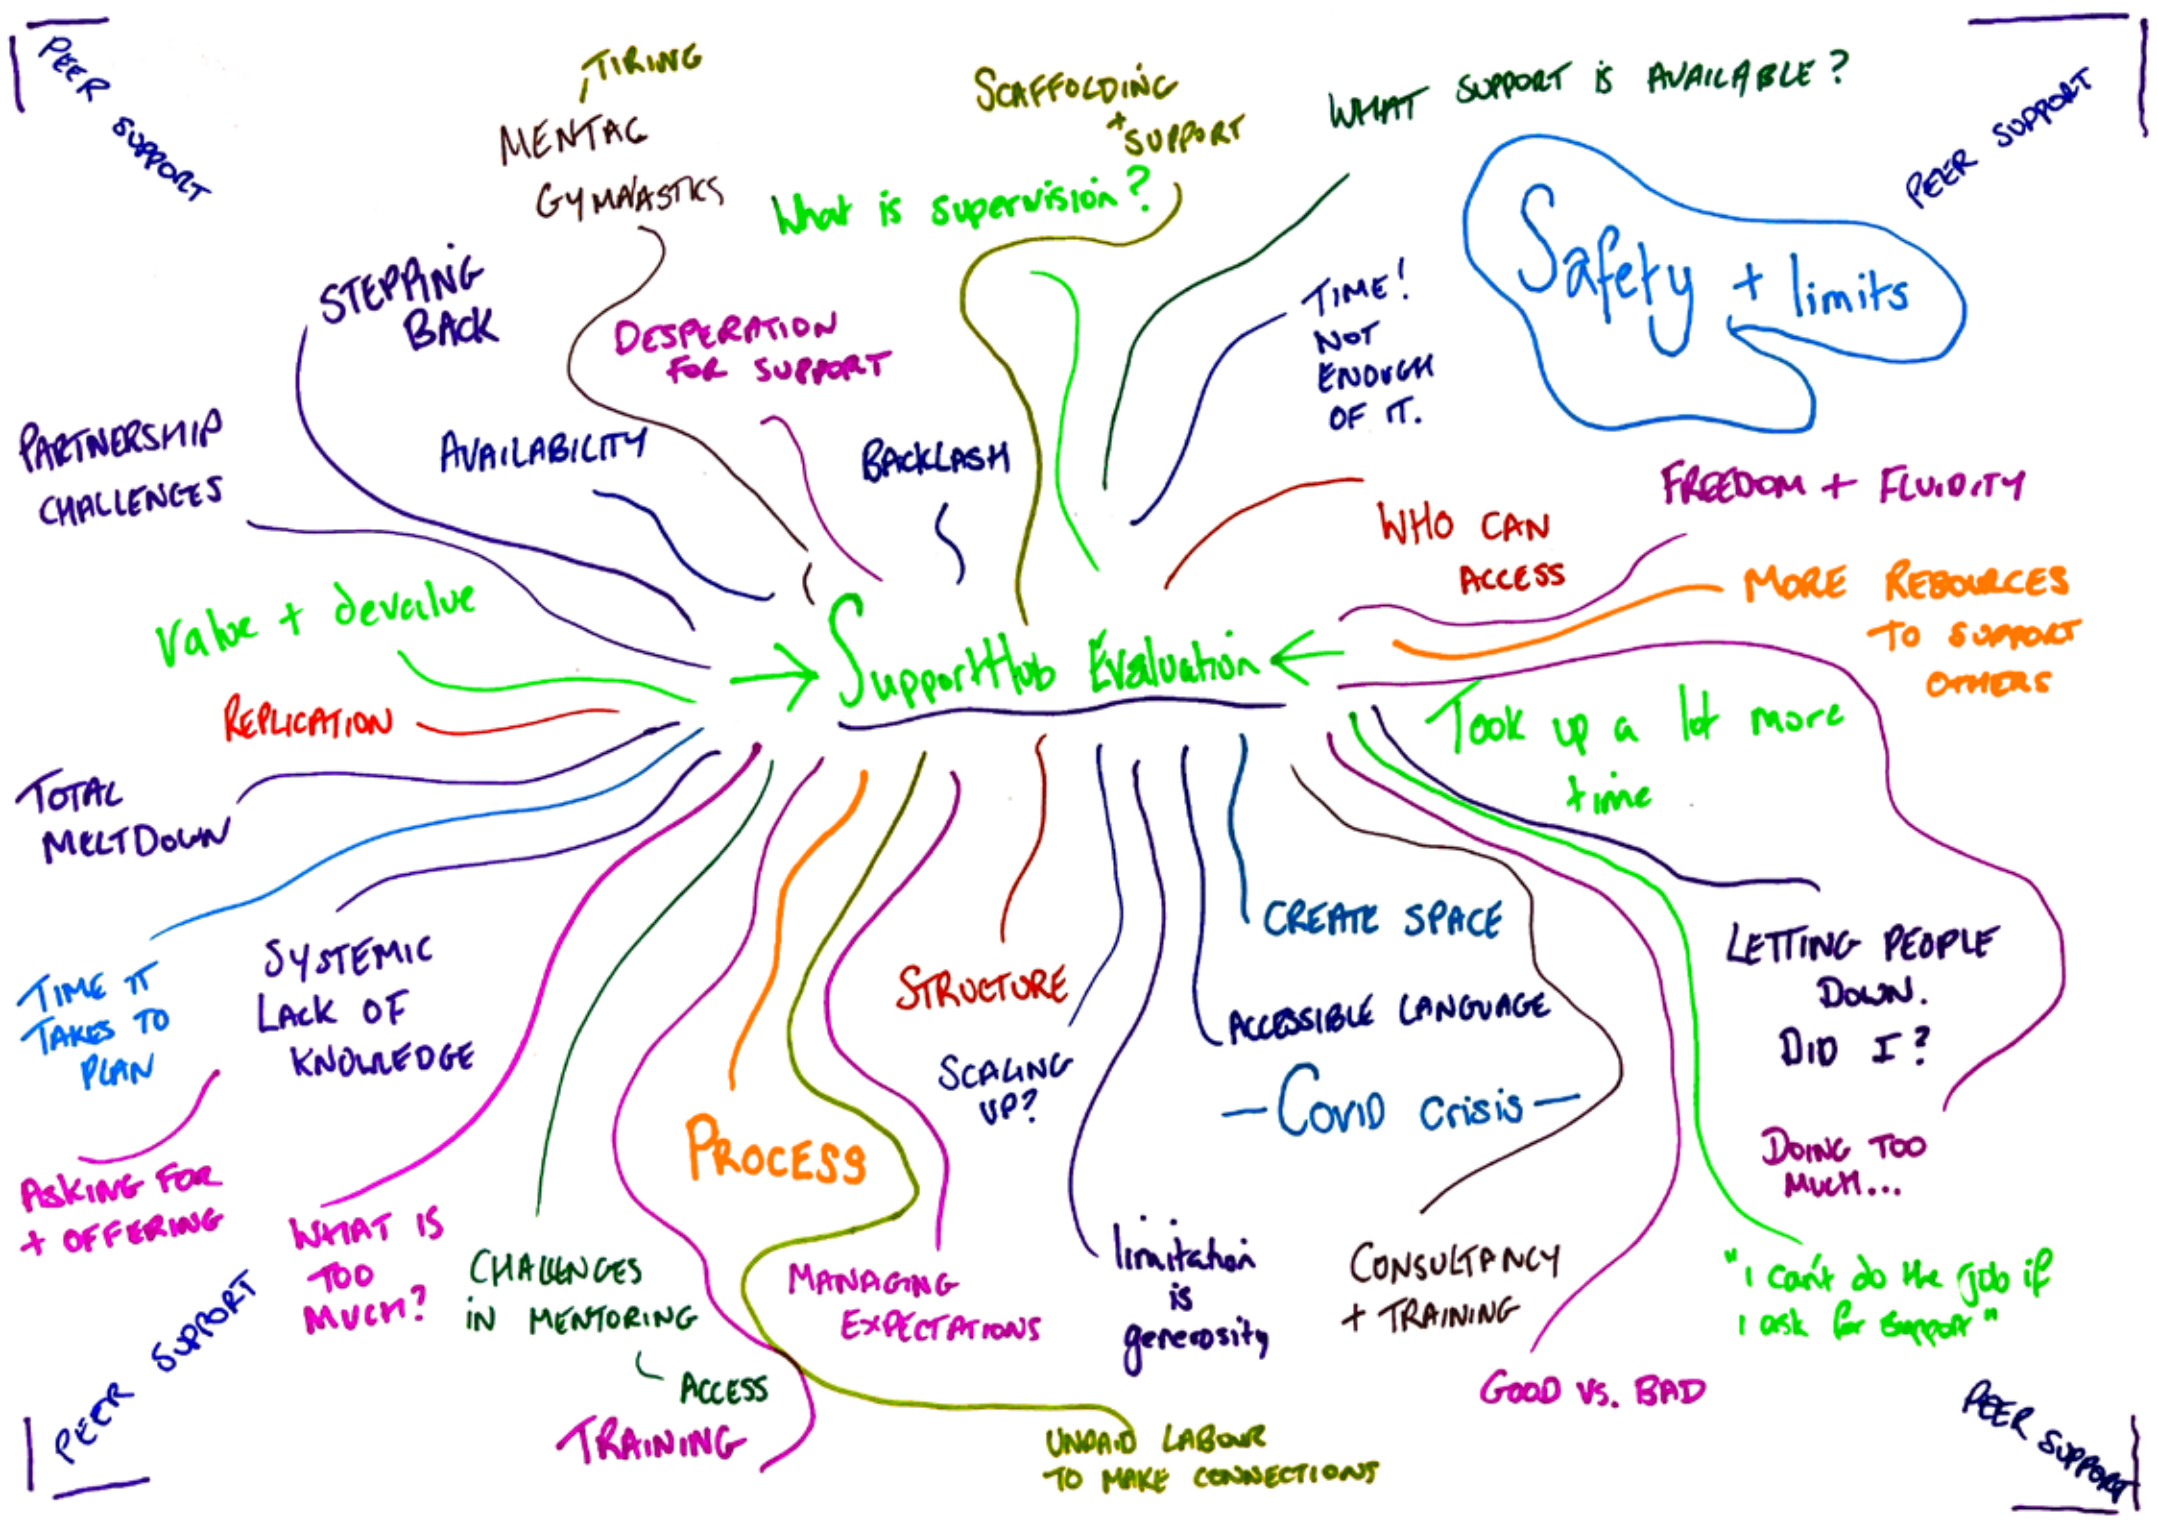 PEER
SUPPORT
TIRING
MENTAL
GYMNASTICS
SCAFFOLDING
+ SUPPORT
WHAT SUPPORT IS AVAILABLE?
PEER SUPPORT
What is supervision?
STEPPING
BACK
DESPERATION
FOR SUPPORT
TIME!
NOT
ENOUGH
OF IT.
Safety + limits
PARTNERSHIP
CHALLENGES
AVAILABILITY
BACKLASH
WHO CAN
ACCESS
FREEDOM + FLUIDITY
MORE RESOURCES
TO SUPPORT
OTHERS
Value + devalue
→ SupportHub Evaluation ←
REPLICATION
Took up a lot more
time
TOTAL
MELTDOWN
TIME IT
TAKES TO
PLAN
SYSTEMIC
LACK OF
KNOWLEDGE
STRUCTURE
CREATE SPACE
ACCESSIBLE LANGUAGE
LETTING PEOPLE
DOWN.
DID I?
SCALING
UP?
- COVID crisis -
PROCESS
DOING TOO
MUCH...
ASKING FOR
+ OFFERING
WHAT IS
TOO
MUCH?
CHALLENGES
IN MENTORING
ACCESS
MANAGING
EXPECTATIONS
limitation
is
generosity
CONSULTANCY
+ TRAINING
"I can't do the job if
I ask for support"
GOOD VS. BAD
TRAINING
UNPAID LABOUR
TO MAKE CONNECTIONS
PEER SUPPORT
PEER SUPPORT